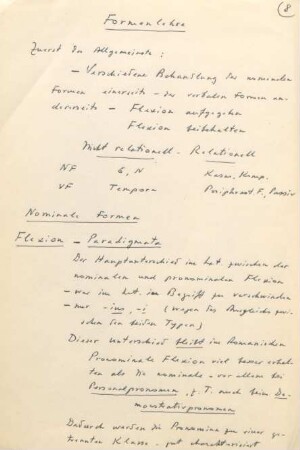 (8
Formenlehre
Zuerst das Allgemeinste :
– Verschiedene Behandlung der nominalen
Formen einerseits – der verbalen Formen an-
dererseits – Flexion aufgegeben
Flexion beibehalten
Nicht relationell – Relationell
NF G, N Kasus, Komp.
VF Tempora Periphrast F., Passiv
Nominale Formen
Flexion – Paradigmata
Der Hauptunterschied im Lat. zwischen der
nominalen und pronominalen Flexion
– war im Lat. im Begriff zu verschwinden
– nur -ius, -i (wegen des Ausgleichs zwi-
schen den beiden Typen)
Dieser Unterschied bleibt im Romanischen
Pronominale Flexion viel besser erhalten
als die nominale – vor allem bei
Personalpronomen, z. T. auch beim De-
monstrativpronomen
Dadurch werden die Pronomina zu einer ge-
trennten Klasse – gut charakterisiert